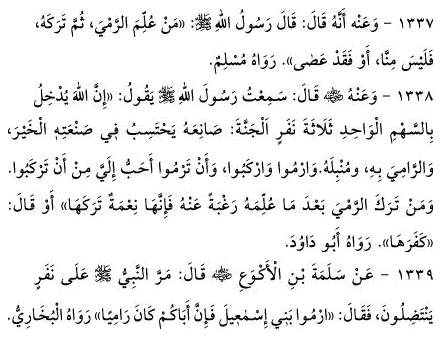 ١٣٣٧ - وَعَنْهُ أَنَّهُ قَالَ: قَالَ رَسُولُ اللهِ ﷺ: «مَنْ عُلِّمَ الرَّمْيَ، ثُمَّ تَرَكَهُ،
فَلَيْسَ مِنَّا، أَوْ فَقَدْ عَصَى». رَوَاهُ مُسْلِمٌ.
١٣٣٨ - وَعَنْهُ ﷺ قَالَ: سَمِعْتُ رَسُولَ اللهِ ﷺ يَقُولُ: «إِنَّ اللهَ يُدْخِلُ
بِالسَّهْمِ الْوَاحِدِ ثَلَاثَةَ نَفَرٍ الْجَنَّةَ: صَانِعَهُ يَحْتَسِبُ فِي صَنْعَتِهِ الْخَيْرَ،
وَالرَّامِيَ بِهِ، وَمُنْبِلَهُ. وَارْمُوا وَارْكَبُوا، وَأَنْ تَرْمُوا أَحَبُّ إِلَيَّ مِنْ أَنْ تَرْكَبُوا.
وَمَنْ تَرَكَ الرَّمْيَ بَعْدَ مَا عُلِّمَهُ رَغْبَةً عَنْهُ فَإِنَّهَا نِعْمَةٌ تَرَكَهَا» أَوْ قَالَ:
«كَفَرَهَا». رَوَاهُ أَبُو دَاوُدَ.
١٣٣٩ - عَنْ سَلَمَةَ بْنِ الْأَكْوَعِ ﷺ قَالَ: مَرَّ النَّبِيُّ ﷺ عَلَى نَفَرٍ
يَنْتَضِلُونَ، فَقَالَ: «ارْمُوا بَنِي إِسْمٰعِيلَ فَإِنَّ أَبَاكُمْ كَانَ رَامِيًا» رَوَاهُ الْبُخَارِيُّ.